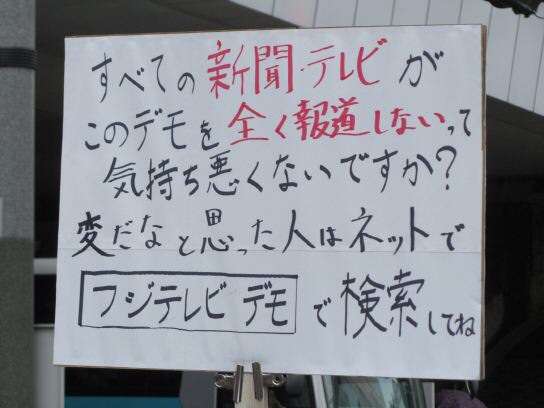 すべての新聞・テレビが
このデモを全く報道しないって
気持ち悪くないですか?
変だなと思った人はネットで
フジテレビ デモ で検索してね